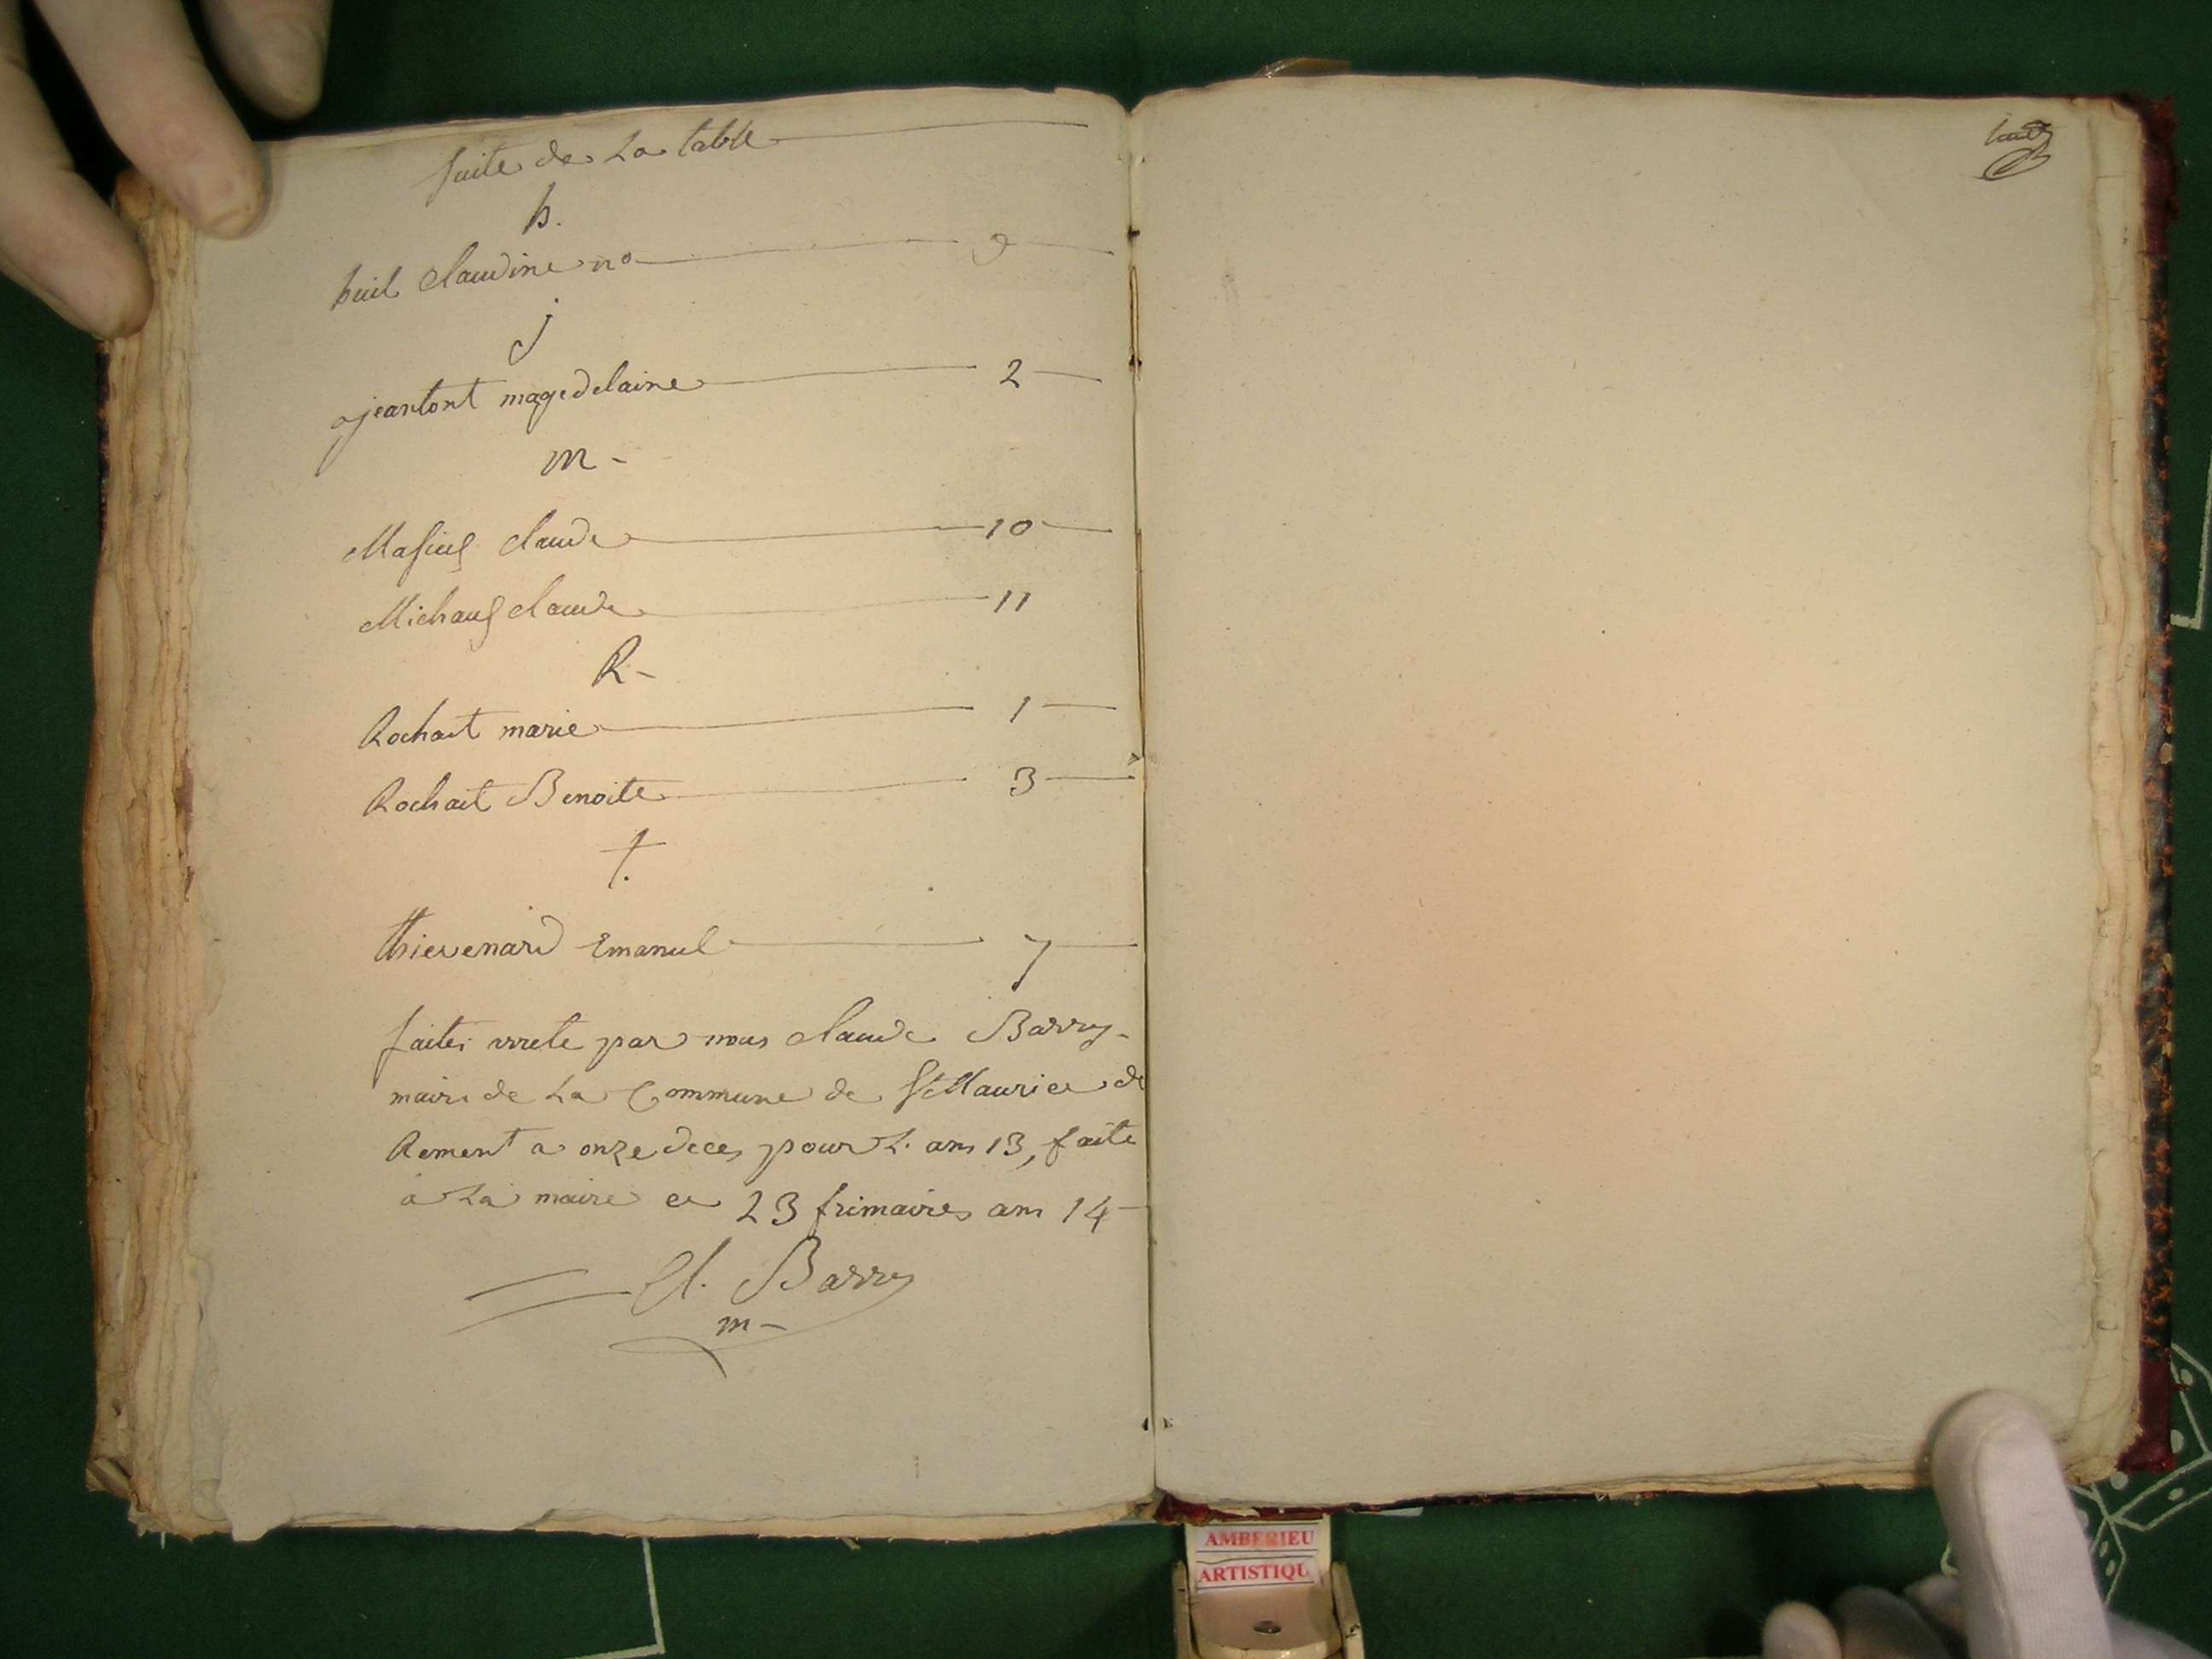 suite de La table
h.
huit Claudine no 9
j
jeantont magedelaine 2
m -
Masius Claude 10
Michaus Claude 11
R -
Rochait marie 1
Rochait Benoite 3
t.
thievenard Emanuel 7
faite arrete par nous Claude Barry -
maire de La Commune de St Maurice de
Rement a onze deces pour L. an 13, faite
a La maire ce 23 frimaires an 14 -
Cl. Barry
m -
huit
AMBERIEU
ARTISTIQU